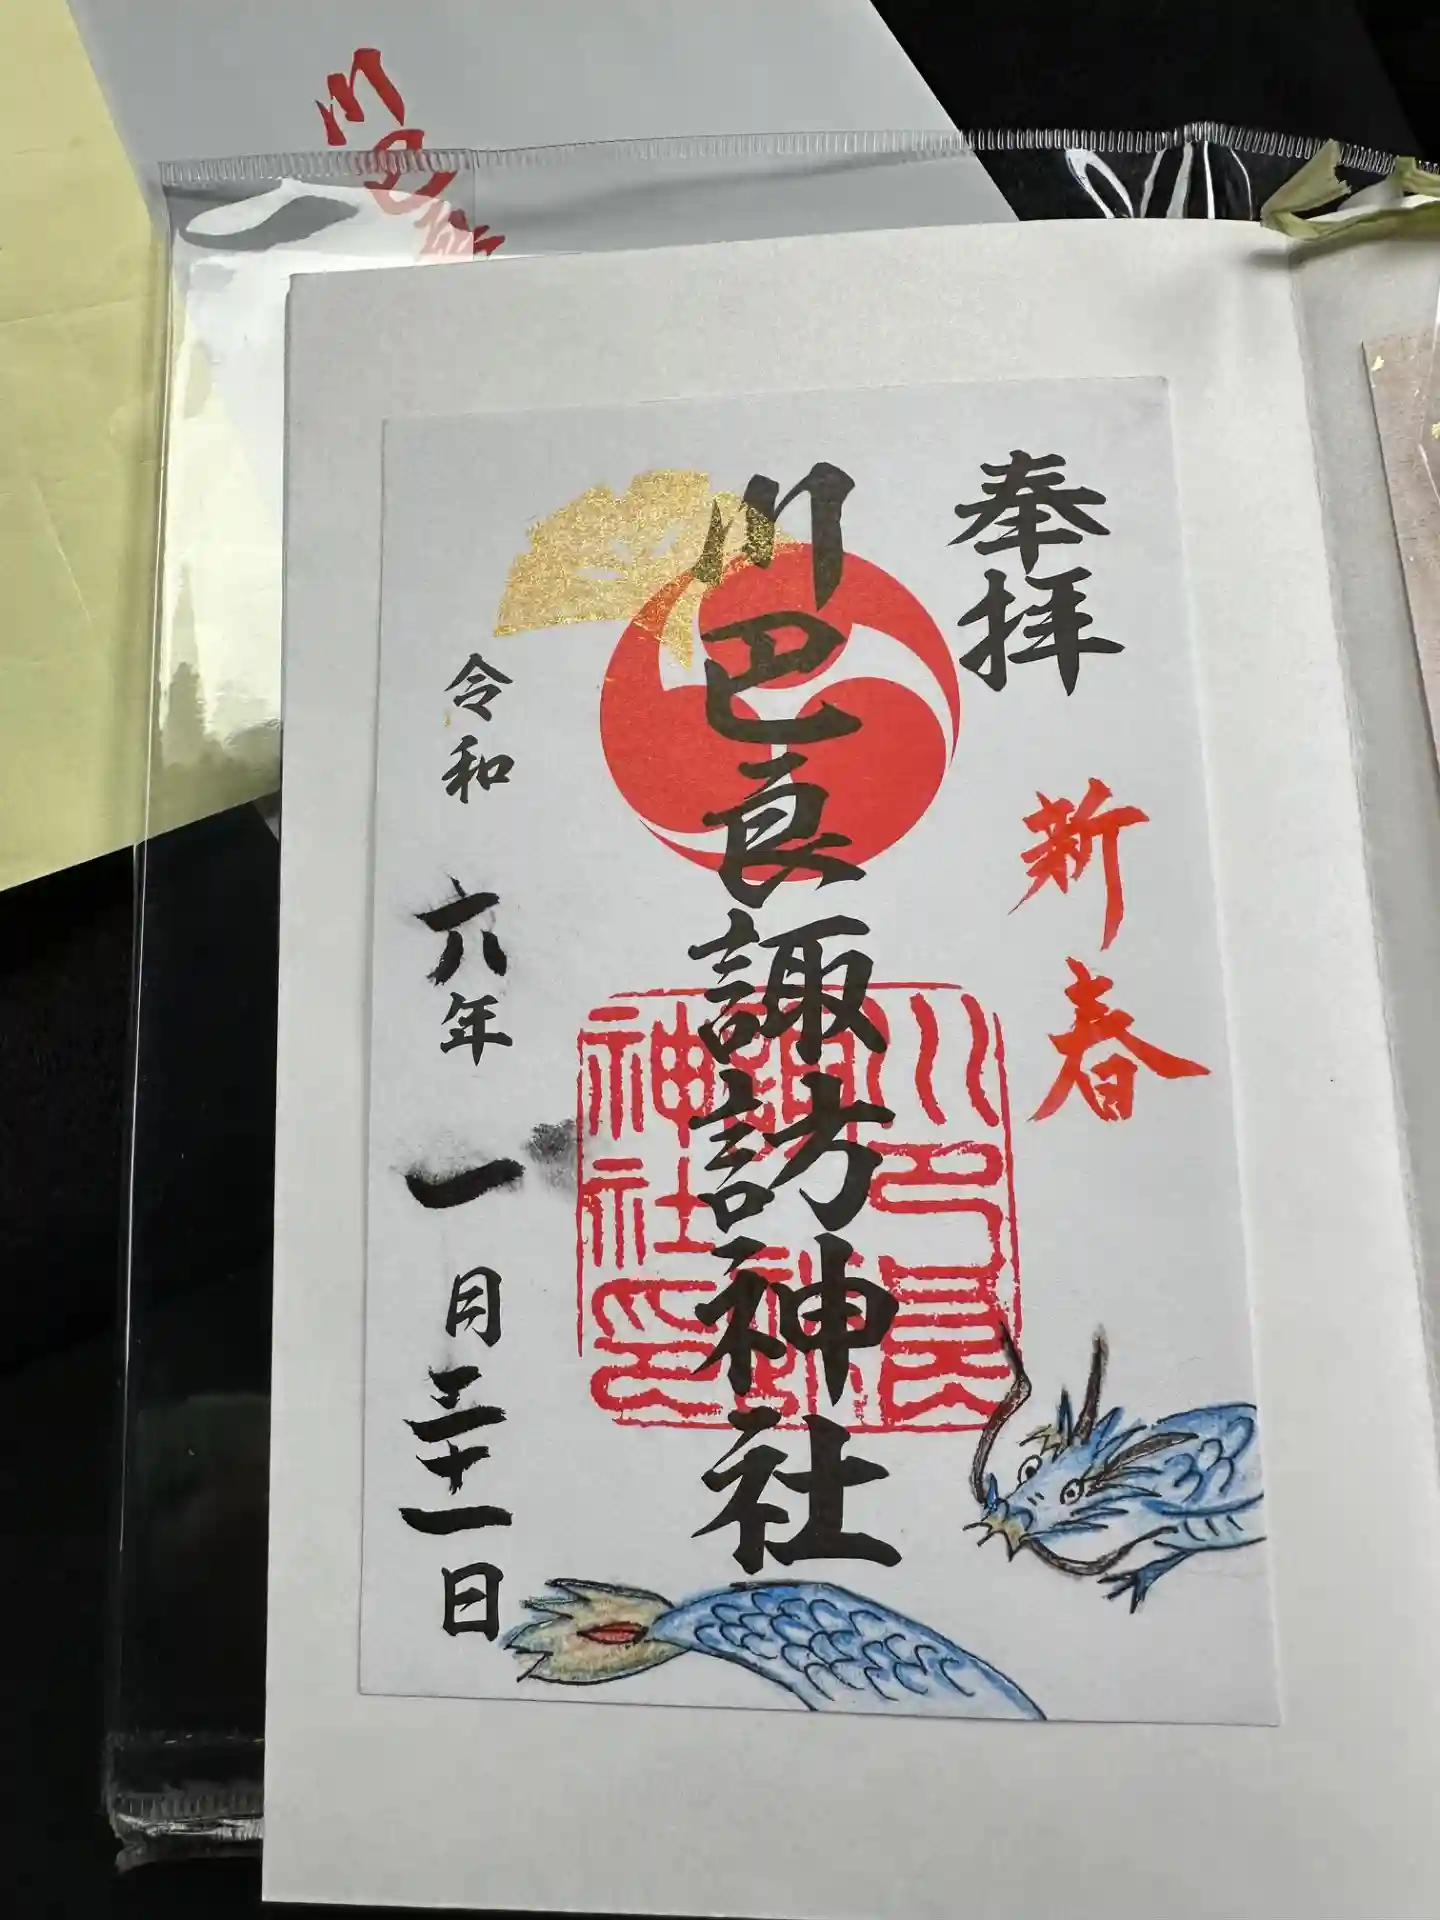 奉拝
新春
川巴良諏訪神社
令和六年一月三十一日
川巴良